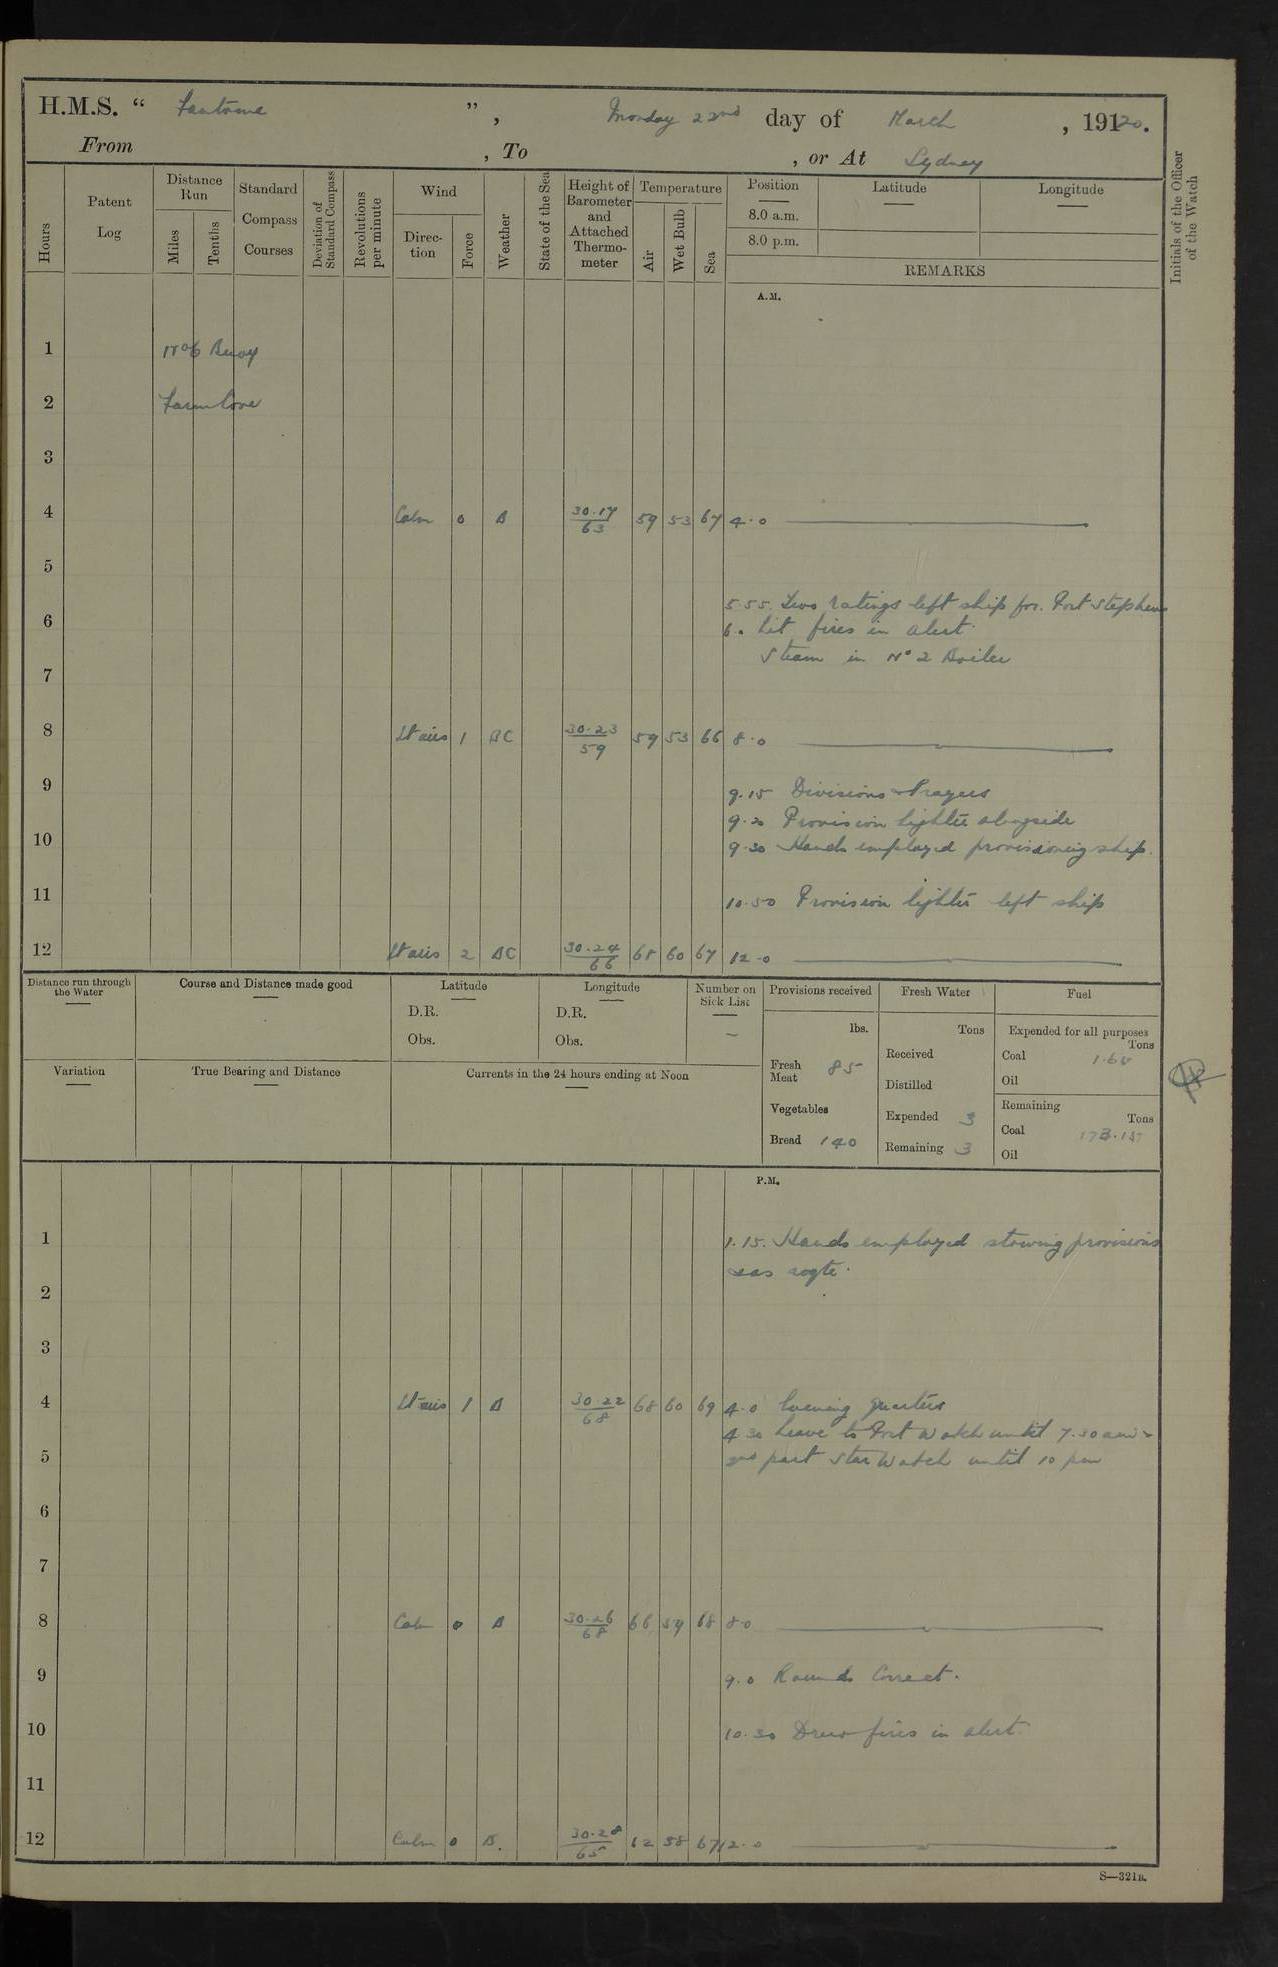 H.M.S. “ Fantome ”, Monday 22nd day of March, 19120.
From , To , or At Sydney
Hours
Patent Log
Distance Run
Miles
Tenths
Standard Compass Courses
Deviation of Standard Compass
Revolutions per minute
Wind
Direction
Force
Weather
State of the Sea
Height of Barometer and Attached Thermometer
Temperature
Air
Wet Bulb
Sea
Position
8.0 a.m.
8.0 p.m.
Latitude
Longitude
REMARKS
Initials of the Officer of the Watch
A.M.
1 No 6 Buoy
2 Farm Cove
3
4 Calm 0 B 30.17/63 59 53 67 4.0
5
5.55. Two ratings left ship for. Port Stephens
6 6. Lit fires in alert.
Steam in No 2 Boiler
7
8 Lt airs 1 BC 30.23/59 59 53 66 8.0
9 9.15 Divisions & Prayers
9.20 Provision lighter alongside
10 9.30 Hands employed provisioning ship.
11 10.50 Provision lighter left ship
12 Lt airs 2 BC 30.24/66 68 60 67 12.0
Distance run through the Water
Course and Distance made good
Latitude
D.R.
Obs.
Longitude
D.R.
Obs.
Number on Sick List
–
Provisions received
lbs.
Fresh Meat 85
Vegetables
Bread 140
Fresh Water
Tons
Received
Distilled
Expended 3
Remaining 3
Fuel
Expended for all purposes
Tons
Coal 1.68
Oil
Remaining
Tons
Coal 173.15
Oil
Variation
True Bearing and Distance
Currents in the 24 hours ending at Noon
P.M.
1 1.15. Hands employed stowing provisions
&as reqte.
2
3
4 Lt airs 1 B 30.22/68 68 60 69 4.0 Evening Quarters
4.30 Leave to Port Watch until 7.30 am &
5 2nd part Star Watch until 10 pm
6
7
8 Calm 0 B 30.26/68 66 59 68 8.0
9 9.0 Rounds Correct.
10 10.30 Drew fires in alert.
11
12 Calm 0 B. 30.28/65 62 58 67 12.0
S—321B.